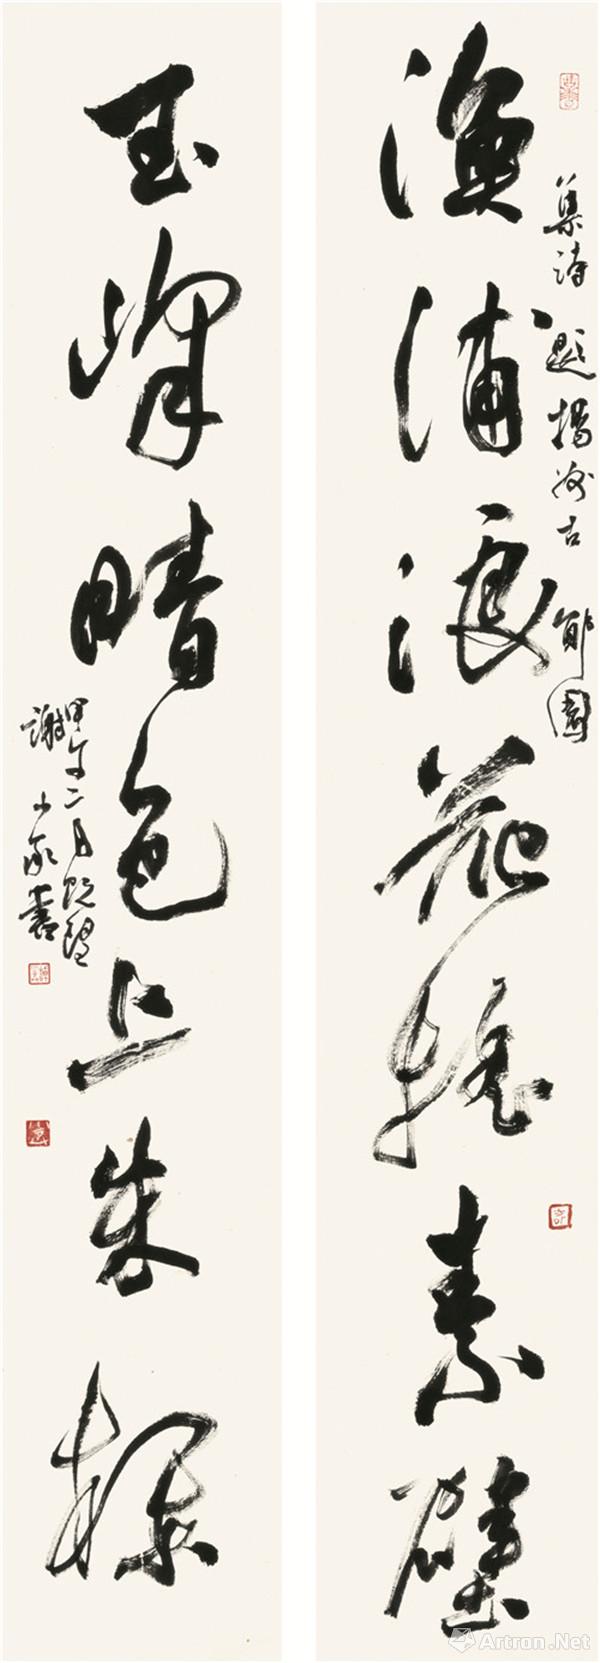 集詩題揚州古園
漁浦浪花搖素壁
玉峰晴色上朱欄
甲午二月既望
謝少承書
Artron.Net